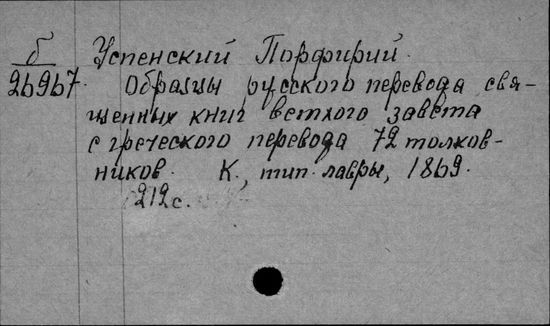 б Успенский Порфирий.
26967. Образцы русского перевода свя-
щенных книг ветхого завета
с греческого перевода 72 толков-
ников. К., тип. лавры, 1869.
212 с.